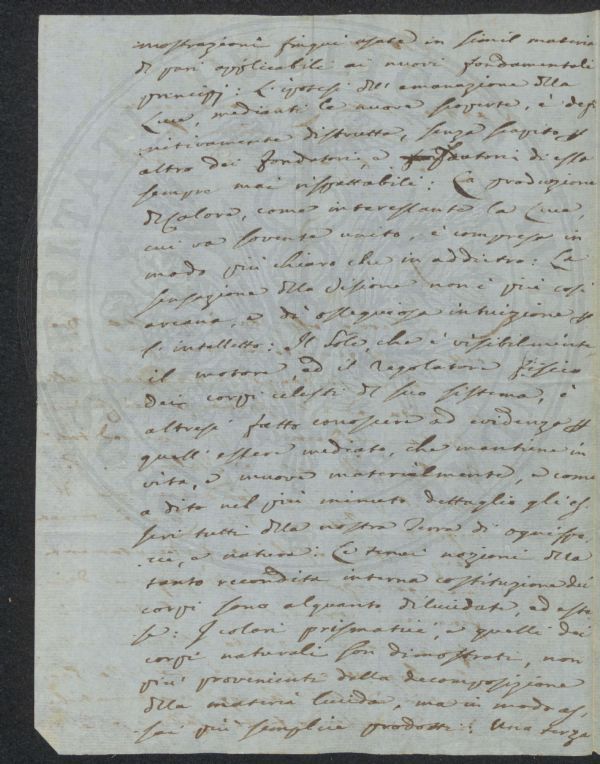 mostrazioni finqui usate in simil materia
di pari applicabili ai nuovi fondamentali
principj: L'ipotesi dell'emanazione della
Luce, mediante le nuove scoperte, è defi
nitivamente distrutta, senza scapito p
altro dei fondatori, e fautori di essa
sempre mai rispettabili: La produzione
di Calore, come interessante la Luce,
cui va sovente unito, è compresa in
modo più chiaro che in addietro: La
sensazione della Visione non è più così
arcana, e di ossequiosa intuizione p
l'intelletto: Il Sole, che è visibilmente
il motore, ed il regolatore fisico
dei corpi celesti del suo sistema, è
altresì fatto conoscere ad evidenza p
quell'essere mediato, che mantiene in
vita, e muove materialmente, e come
a dito nel più minuto dettaglio gli es
seri tutti della nostra Terra di ogni spe
cie, e natura: Le tenui nozioni della
tanto recondita interna costituzione dei
corpi sono alquanto dilucidate, ed este
se: I colori prismatici, e quelli dei
corpi naturali son dimostrati, non
più provenienti dalla decomposizione
della materia lucida, ma in modo as
sai più semplice prodotti: Una terza